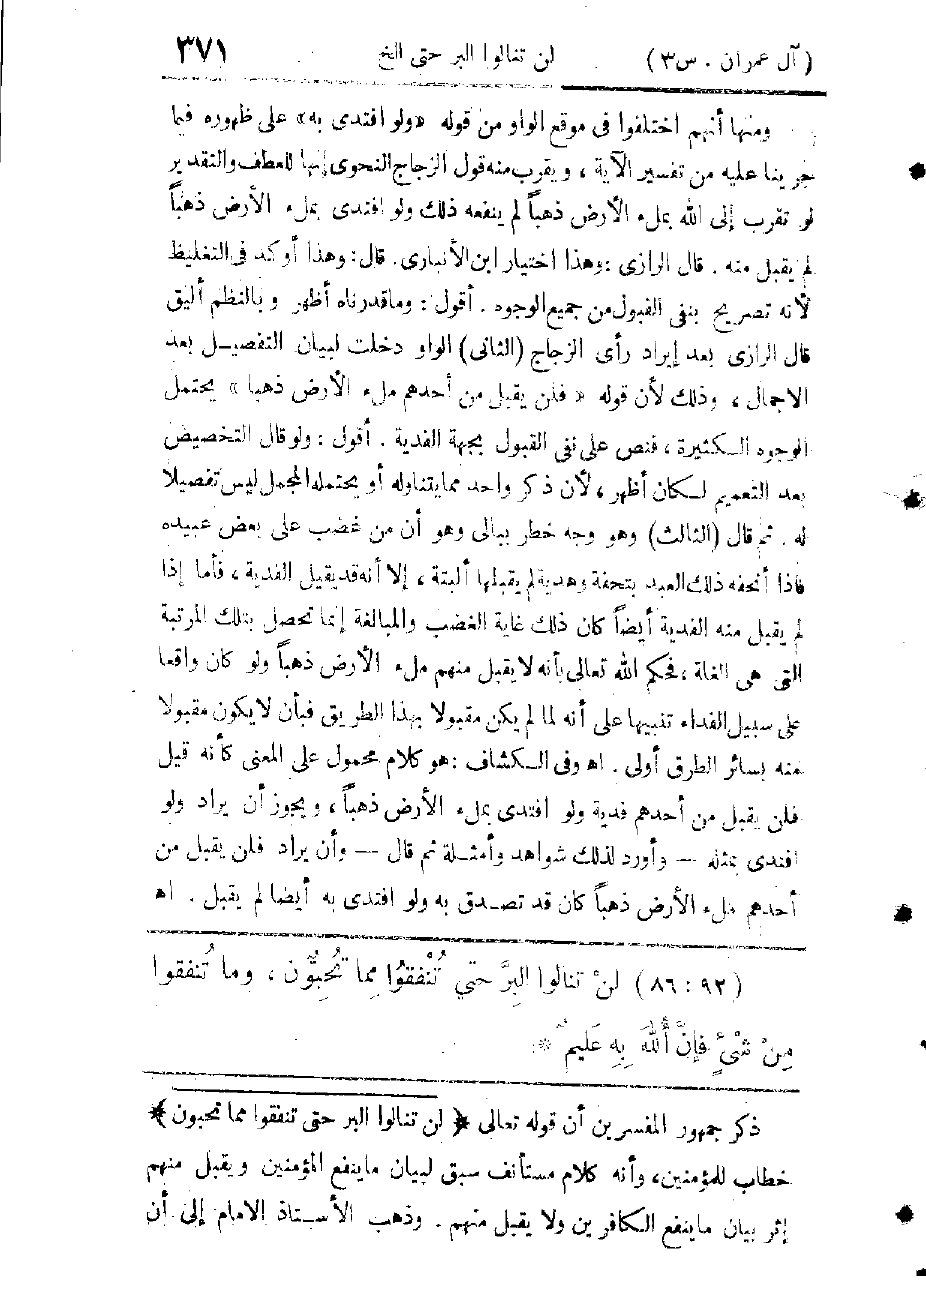 (آل عمران . س٣) لن تنالوا البر حتى الخ ٣٧١
ومنها أنهم اختلفوا فى موقع الواو من قوله «ولو افتدى به» على ظهوره فيما
جرينا عليه من تفسير الآية ، ويقرب منه قول الزجاج النحوى إنها للعطف والتقدير
لو تقرب إلى الله بملء الأرض ذهباً لم ينفعه ذلك ولو افتدى بملء الأرض ذهباً
لم يقبل منه . قال الرازى : وهذا اختيار ابن الأنبارى. قال : وهذا أوكد فى التغليظ
لأنه تصريح بنفى القبول من جميع الوجوه . أقول : وما قدرناه أظهر وبالنظم أليق
قال الرازى بعد إيراد رأى الزجاج (الثانى) الواو دخلت لبيان التفصيل بعد
الاجمال ، وذلك لأن قوله « فلن يقبل من أحدهم ملء الأرض ذهبا » يحتمل
الوجوه الكثيرة ، فنص على نفى القبول بجهة الفدية . أقول : ولو قال التخصيص
بعد التعميم لكان أظهر ، لأن ذكر واحد مما يتناوله أو يحتمله المجمل ليس تفصيلا
له . ثم قال (الثالث) وهو وجه خطر ببالى وهو أن من غضب على بعض عبيده
فاذا أتحفه ذلك العبد بتحفة وهدية لم يقبلها ألبتة ، إلا أنه قد يقبل الفدية ، فأما إذا
لم يقبل منه الفدية أيضاً كان ذلك غاية الغضب والمبالغة إنما تحصل بتلك المرتبة
التى هى الغاة ، فحكم الله تعالى بأنه لا يقبل منهم ملء الأرض ذهباً ولو كان واقعا
على سبيل الفداء تنبيها على أنه لما لم يكن مقبولا بهذا الطريق فبأن لا يكون مقبولا
منه بسائر الطرق أولى . اه وفى الكشاف : هو كلام محمول على المعنى كأنه قيل
فلن يقبل من أحدهم فدية ولو افتدى بملء الأرض ذهباً ، ويجوز أن يراد ولو
افتدى بمثله — وأورد لذلك شواهد وأمثلة ثم قال — وأن يراد فلن يقبل من
أحدهم ملء الأرض ذهباً كان قد تصدق به ولو افتدى به أيضا لم يقبل . اه
(٩٢ : ٨٦) لنْ تنالوا البِرَّ حتي تُنْفقُوا مِما تُحِبُّون ، وما تُنفقوا
مِنْ شَىْءٍ فإنَّ اُللهَ بِهِ عَليمٌ *
ذكر جمهور المفسرين أن قوله تعالى ﴿ لن تنالوا البر حتى تنفقوا مما تحبون ﴾
خطاب للمؤمنين، وأنه كلام مستأنف سبق لبيان ما ينفع المؤمنين ويقبل منهم
إثر بيان ما ينفع الكافرين ولا يقبل منهم . وذهب الأستاذ الامام إلى أن